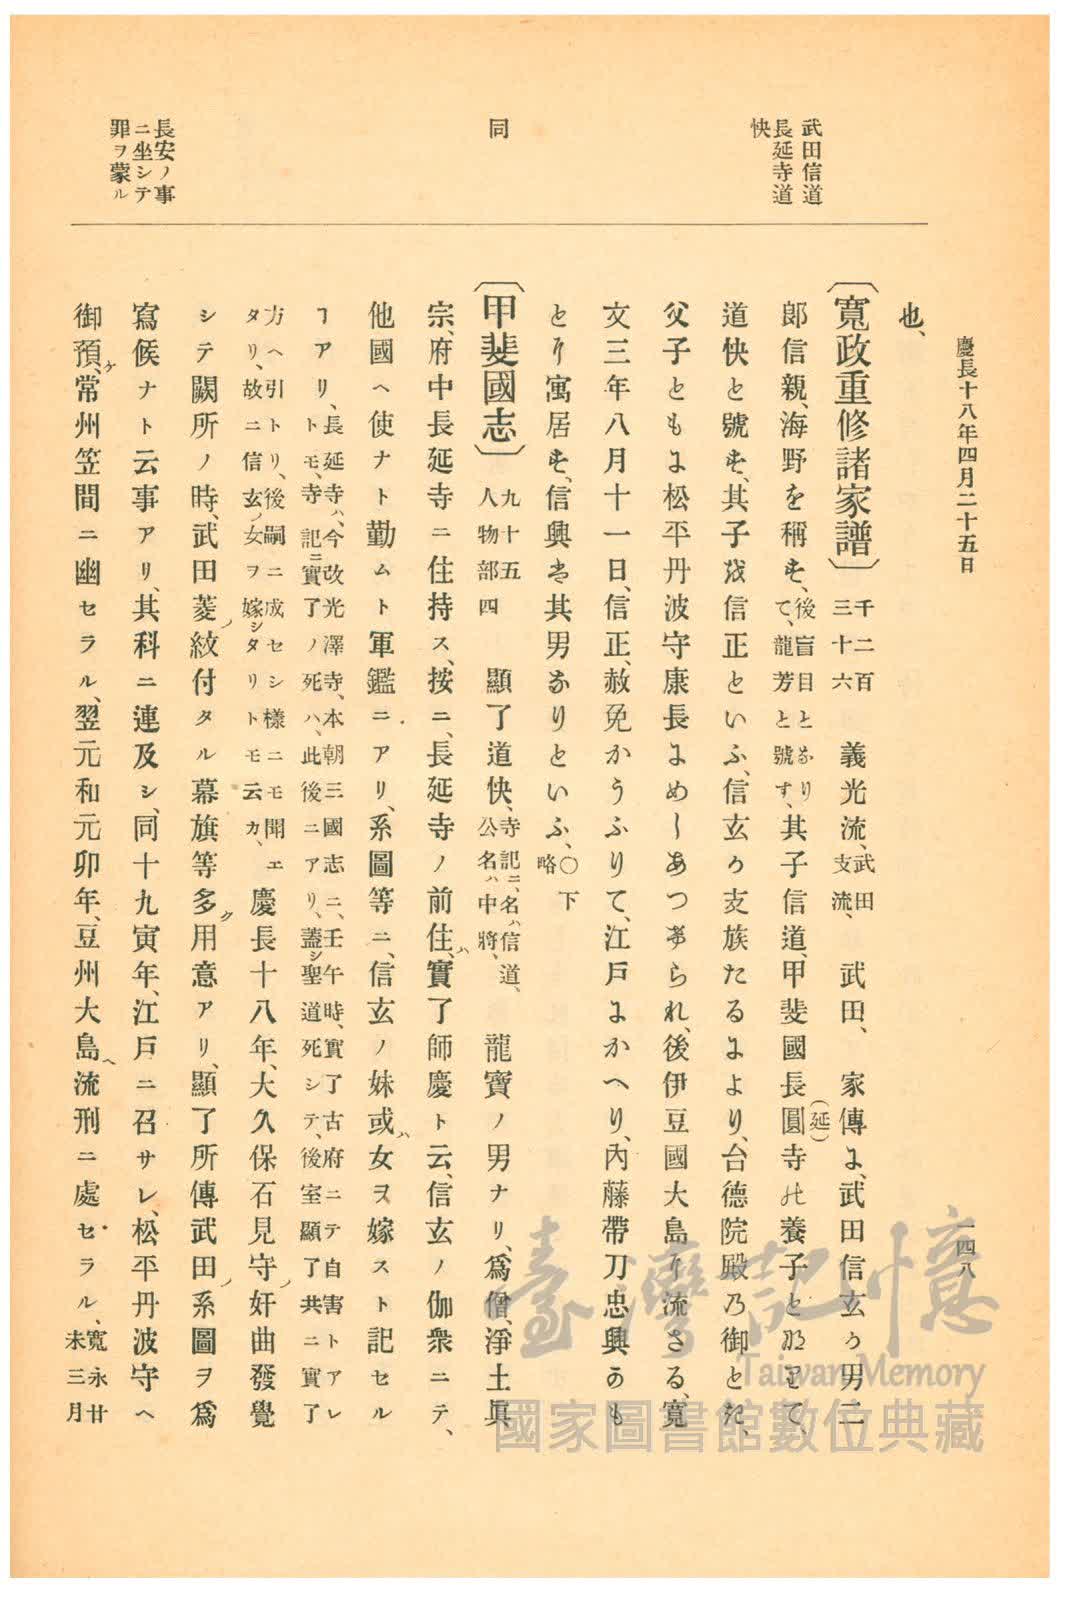 慶長十八年四月二十五日
一四八
武田信道
長延寺道
快
同
長安ノ事
ニ坐シテ
罪ヲ蒙ル
也、
〔寬政重修諸家譜〕千二百三十六 義光流、武田支流、 武田、 家傳に、武田信玄か男二
郎信親、海野を稱す、後盲目となりて、龍芳と號す、其子信道、甲斐國長圓(延)寺の養子となりて、
道快と號す、其子を信正といふ、信玄か支族たるにより、台德院殿乃御とき、
父子ともに松平丹波守康長にめしあつけられ、後伊豆國大島に流さる、寬
文三年八月十一日、信正、赦免かうふりて、江戶にかへり、內藤帶刀忠興のも
とに寓居す、信興は其男なりといふ、〇下略
〔甲斐國志〕九十五人物部四 顯了道快、寺記ニ、名ハ信道、公名ハ中將、 龍寶ノ男ナリ、爲僧、淨土眞
宗、府中長延寺ニ住持ス、按ニ、長延寺ノ前住ハ、實了師慶ト云、信玄ノ伽衆ニテ、
他國ヘ使ナト勤ムト軍鑑ニアリ、系圖等ニ、信玄ノ妹或ハ女ヲ嫁スト記セル
ヿアリ、長延寺ハ、今改光澤寺、本朝三國志ニ、壬午時、實了古府ニテ自害トアレ
トモ、寺記ニ實了ノ死ハ、此後ニアリ、蓋シ聖道死シテ、後室顯了共ニ實了
方ヘ引トリ、後嗣ニ成セシ樣ニモ聞エ
タリ、故ニ信玄ノ女ヲ嫁シタリトモ云カ、慶長十八年、大久保石見守ノ奸曲發覺
シテ闕所ノ時、武田菱ノ紋付タル幕旗等多ク用意アリ、顯了所傳武田ノ系圖ヲ爲
寫候ナト云事アリ、其科ニ連及シ、同十九寅年、江戶ニ召サレ、松平丹波守ヘ
御預ケ、常州笠間ニ幽セラル、翌元和元卯年、豆州大島ヘ流刑ニ處セラル、寬永廿未三月
臺灣記憶
Taiwan Memory
國家圖書館數位典藏